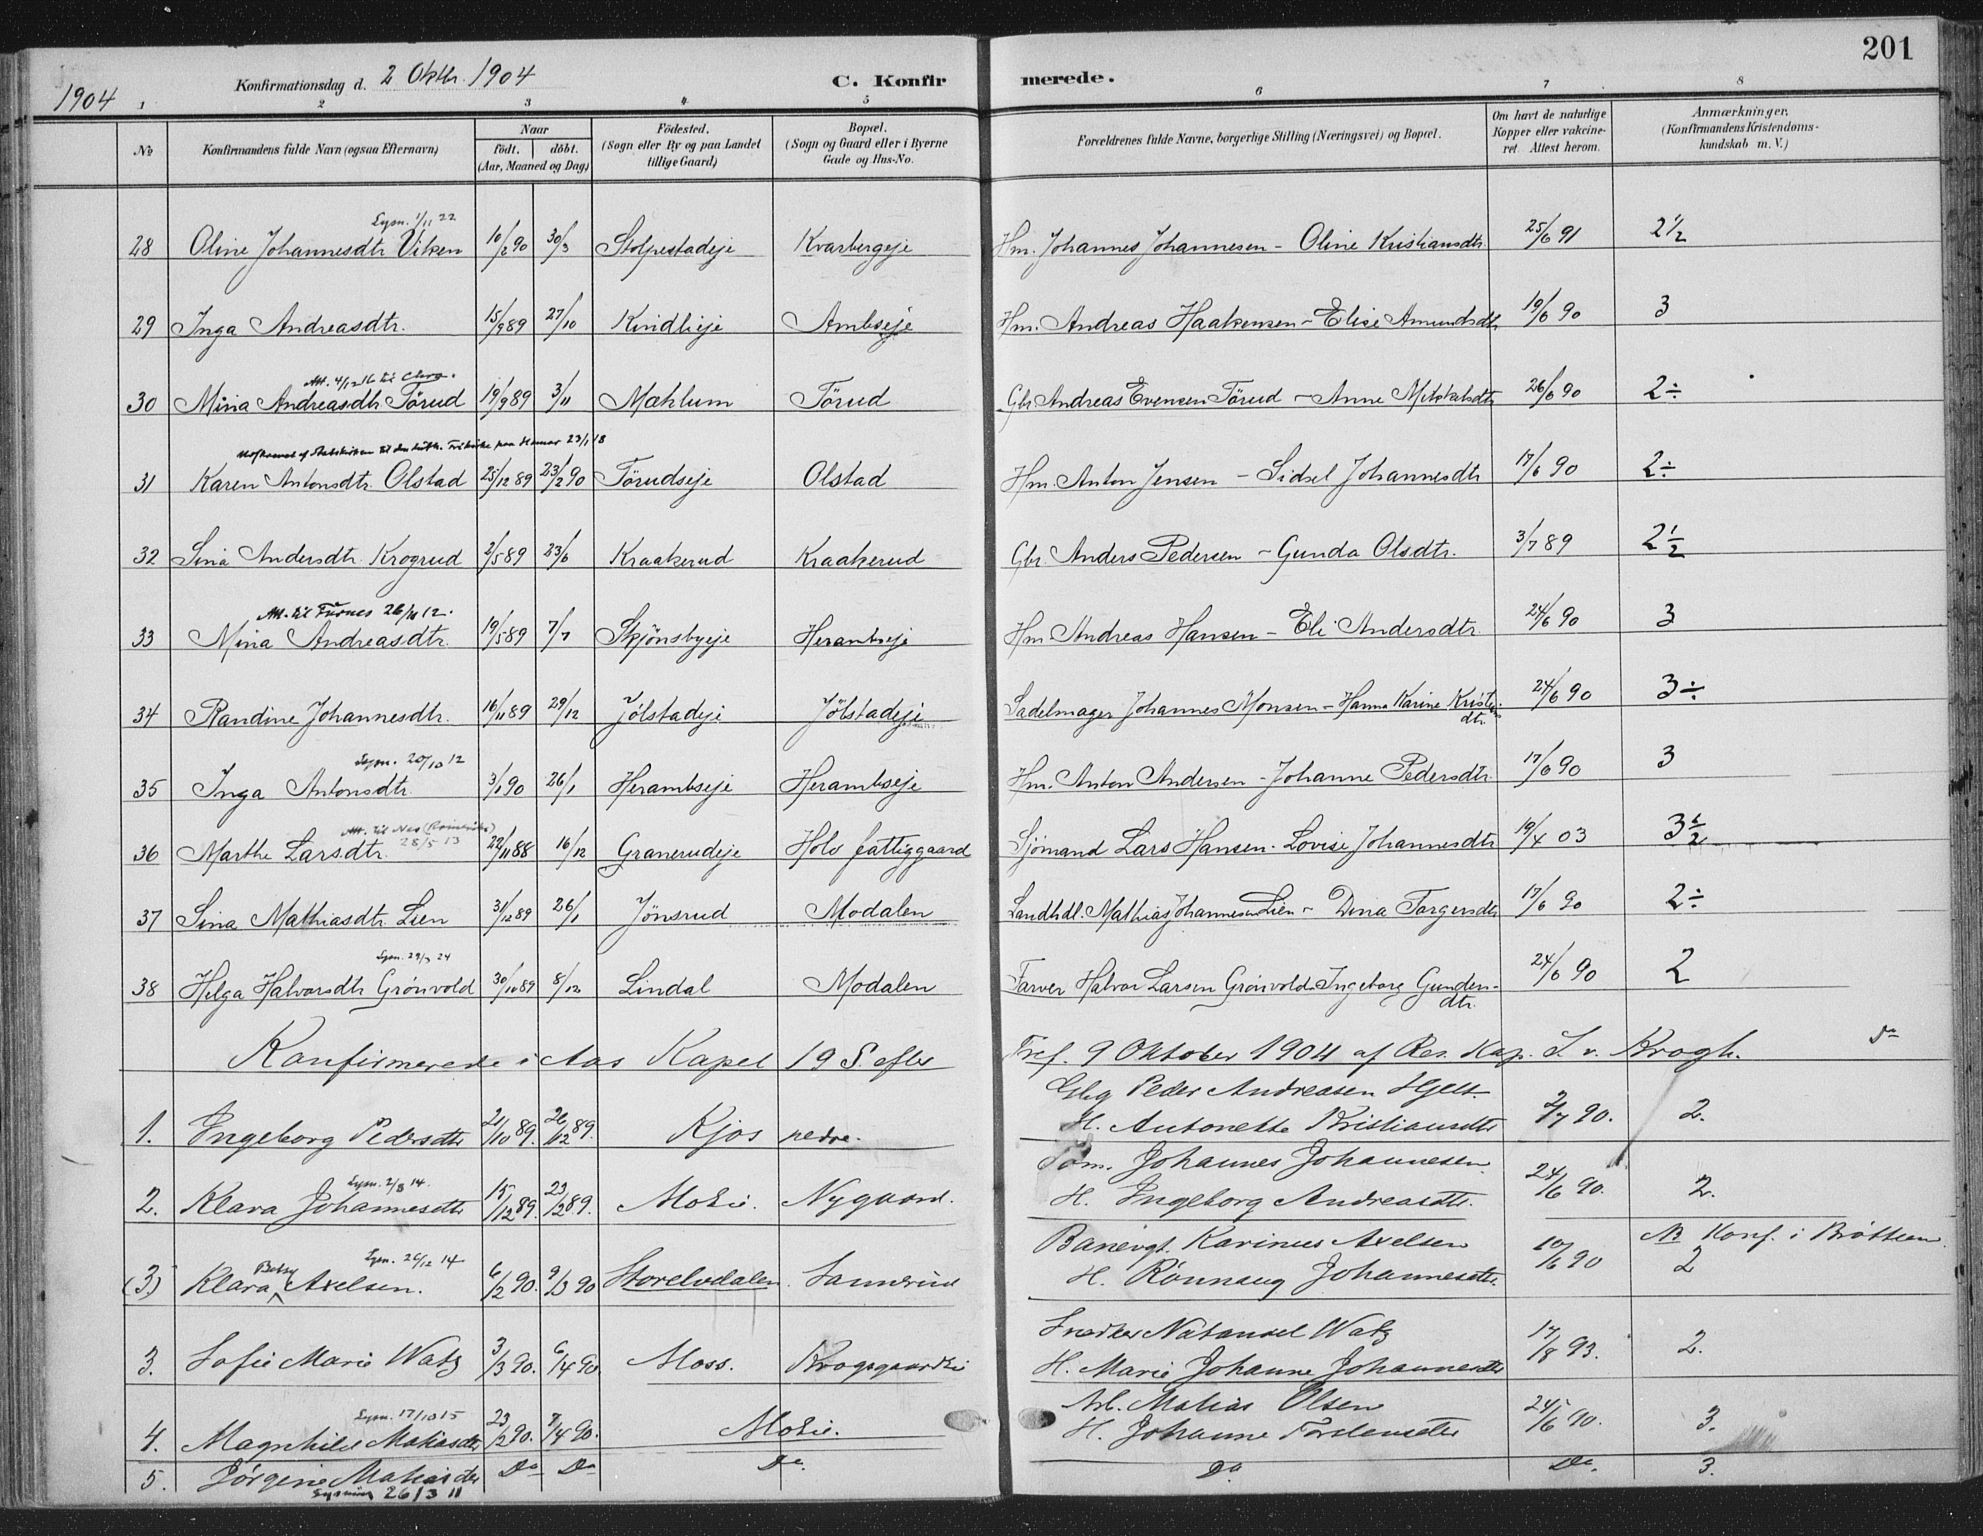 201
1904
Konfirmationsdag d. 2 Oktbr. 1904
C. Konfirmerede.
1 2 3 4 5 6 7 8
No
Konfirmandens fulde Navn (ogsaa Efternavn)
Naar
født. døbt.
(Aar, Maaned og Dag)
Fødested.
(Sogn eller By og paa Landet
tillige Gaard)
Bopæl.
(Sogn og Gaard eller i Byerne
Gade og Hus-No.
Forældrenes fulde Navne, borgerlige Stilling (Næringsvei) og Bopæl.
Om havt de naturlige
Kopper eller vakcine-
ret. Attest herom.
Anmærkninger.
(Konfirmandens Kristendoms-
kundskab m. V.)
Lysn. 1/11 22
28 Oline Johannesdtr Viken 10/2 90 30/3 Stolpestadeje Kvarbergeje Hm. Johannes Johannesen - Oline Kristiansdtr. 25/6 91 2 1/2
29 Inga Andreasdtr. 15/9 89 27/10 Kindlieje Ambseje Hm. Andreas Haakensen - Elise Amundsdtr 19/6 90 3
Att. 4/12 16 til
30 Mina Andreasdtr Törud 19/9 89 3/11 Mæhlum Törud Gbr Andreas Evensen Törud - Anne 26/6 90 2÷
af Statskirken til den luth. Frikirke paa Hamar 23/1 18
31 Karen Antonsdtr. Olstad 25/12 89 23/2 90 Törudseje Olstad Hm. Anton Jensen - Sidsel Johannesdtr 17/6 90 2÷
32 Sina Andersdtr. Krogrud 2/5 89 23/6 Kraakerud Kraakerud Gbr. Anders Pedersen - Gunda Olsdtr. 3/7 89 2 1/2
Att. til Furnes 26/11 12.
33 Mina Andreasdtr. 19/5 89 7/7 Skjönsbyeje Herambseje Hm Andreas Hansen - Eli Andersdtr. 24/6 90 3
34 Randine Johannesdtr. 16/11 89 29/12 Jölstadeje Jölstadeje Sadelmager Johannes Monsen - Hanna Karine Kristens
dtr. 24/6 90 3÷
Lysn. 20/10 12
35 Inga Antonsdtr. 3/1 90 26/1 Herambseje Herambseje Hm. Anton Andersen - Johanne Pedersdtr. 17/6 90 3
Att. til Nes (Romerike)
28/5 13
36 Marthe Larsdtr. 22/11 88 16/12 Granerudeje Hols fattiggaard Sjömand Lars Hansen - Lovise Johannesdtr 19/4 03 3 1/2
37 Sina Mathiasdtr. Lien 31/12 89 26/1 Jönsrud Modalen Landhdl. Mathias Johannesen Lien - Dina Torgersdtr 17/6 90 2÷
Lysn. 29/3 24
38 Helga Halvorsdtr Grönvold 30/10 89 8/12 Lindal Modalen Farver Halvor Larsen Grönvold - Ingeborg Gunders-
dtr. 24/6 90 2
Konfirmerede i Aas Kapel 19 S. efter Tref. 9 Oktober 1904 af Res. Kap. S. v. Krogh.
1. Ingeborg Pedersdtr 21/10 89. 26/12 89. Kjos nedre. Gbg Peder Andreasen Hjelt.
H. Antonette Kristiansdtr 2/7 90. 2.
Lysn. 2/8 14.
2. Klara Johannesdtr 15/12 89. 23/12 89. Moeie. Nygaard. Töm. Johannes Johannesen.
H. Ingeborg Andreasdtr. 24/6 90. 2.
Betsy Lysn. 26/12 14
(3.) Klara Axelsen. 6/2 90. 9/3 90 Storelvdalen. Sannerud Banevgt. Karinus Axelsen
H. Rönnaug Johannesdtr. 10/6 90 NB Konf. i Bröttum.
2
3. Sofie Marie Watz 3/3 90. 6/4 90. Moss. Krogsgaardeie Snedker Natanael Watz
H. Marie Johanne Johannesdtr 17/8 93. 2.
Lysn. 17/10 15
4. Magnhild Matiasdtr 23/2 90. 7/4 90. Moeie. Arb. Matias Olsen
H. Johanne 24/6 90. 3.
5. Jörgine Matiasdtr Do Do Do. Do Do. 3.
Lysning 26/3 11